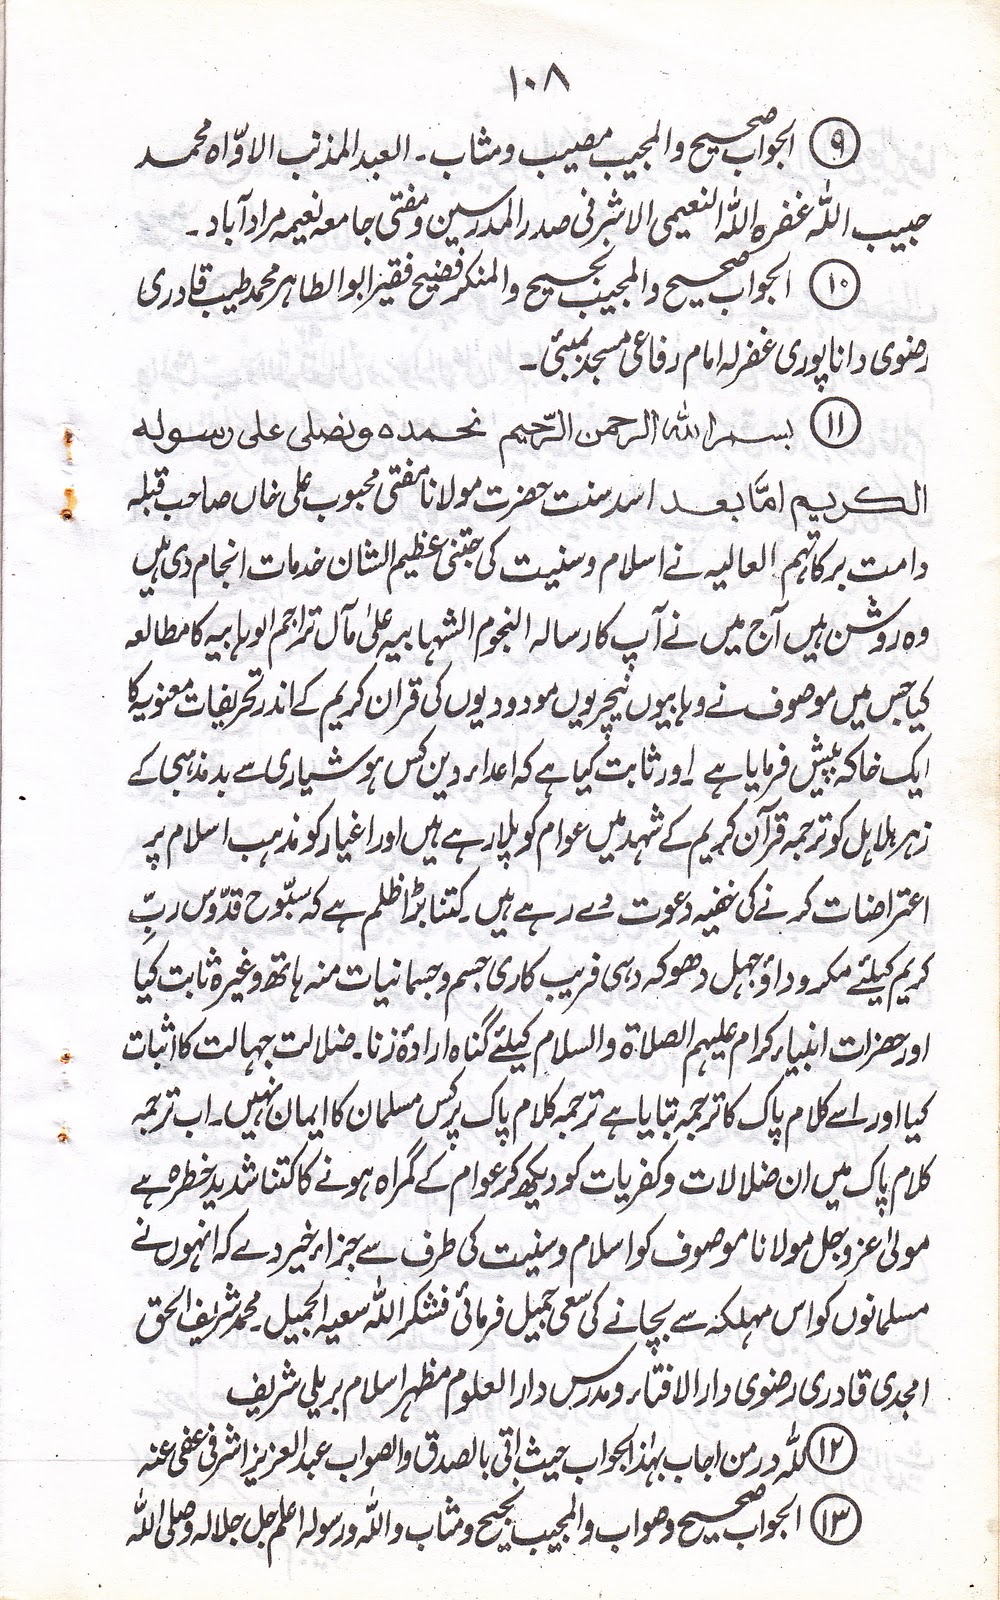 ۱۰۸
۹ الجواب صحیح والمجیب مصیب ومثاب ۔ العبد المذنب الاوّاہ محمد
حبیب اللہ غفرہ اللہ النعیمی الاشرفی صدر المدرسین ومفتی جامعہ نعیمہ مرادآباد ۔
۱۰ الجواب صحیح والمجیب نجیح والمنکر فضیح فقیر ابوالطاہر محمد طیب قادری
رضوی داناپوری غفرلہ امام رفاعی مسجد بمبئی ۔
۱۱ بسم اللہ الرحمن الرّحیم نحمدہ ونصلی علی رسولہ
الکریم امّا بعد اسد سنت حضرت مولانا مفتی محبوب علی خاں صاحب قبلہ
دامت برکاتہم العالیہ نے اسلام وسنیت کی جتنی عظیم الشان خدمات انجام دی ہیں
وہ روشن ہیں آج میں نے آپ کا رسالہ النجوم الشہابیہ علیٰ مآل تراجم الوہابیہ کا مطالعہ
کیا جس میں موصوف نے وہابیوں نیچریوں مودودیوں کی قران کریم کے اندر تحریفات معنویہ کا
ایک خاکہ پیش فرمایا ہے اور ثابت کیا ہے کہ اعداء دین کس ہوشیاری سے بدمذہبی کے
زہر ہلاہل کو ترجمہ قرآن کریم کے شہد میں عوام کو پلا رہے ہیں اور اغیار کو مذہب اسلام پر
اعتراضات کرنے کی خفیہ دعوت دے رہے ہیں ۔ کتنا بڑا ظلم ہے کہ سبّوح قدّوس ربِّ
کریم کیلئے مکر وداؤ جہل دھوکہ دہی فریب کاری جسم وجسمانیات منہ ہاتھ وغیرہ ثابت کیا
اور حضرات انبیاء کرام علیہم الصلاۃ والسلام کیلئے گناہ ارادۂ زنا ۔ ضلالت جہالت کا اثبات
کیا اور اسے کلام پاک کا ترجمہ بتایا ہے ترجمہ کلام پاک پر کس مسلمان کا ایمان نہیں ۔ اب ترجمہ
کلام پاک میں ان ضلالات وکفریات کو دیکھ کر عوام کے گمراہ ہونے کا کتنا شدید خطرہ ہے
مولیٰ عزوجل مولانا موصوف کو اسلام وسنیت کی طرف سے جزاء خیر دے کہ انہوں نے
مسلمانوں کو اس مہلکہ سے بچانے کی سعی جمیل فرمائی فشکر اللہ سعیہ الجمیل ۔ محمد شریف الحق
امجدی قادری رضوی دار الافتاء ومدرس دار العلوم مظہر اسلام بریلی شریف
۱۲ للّٰہ در من اجاب بہٰذا الجواب حیث اتی بالصدق والصواب عبدالعزیز اشرفی عفی عنہ
۱۳ الجواب صحیح وصواب والمجیب نجیح ومثاب واللہ ورسولہ اعلم جل جلالہ وصلی اللہ